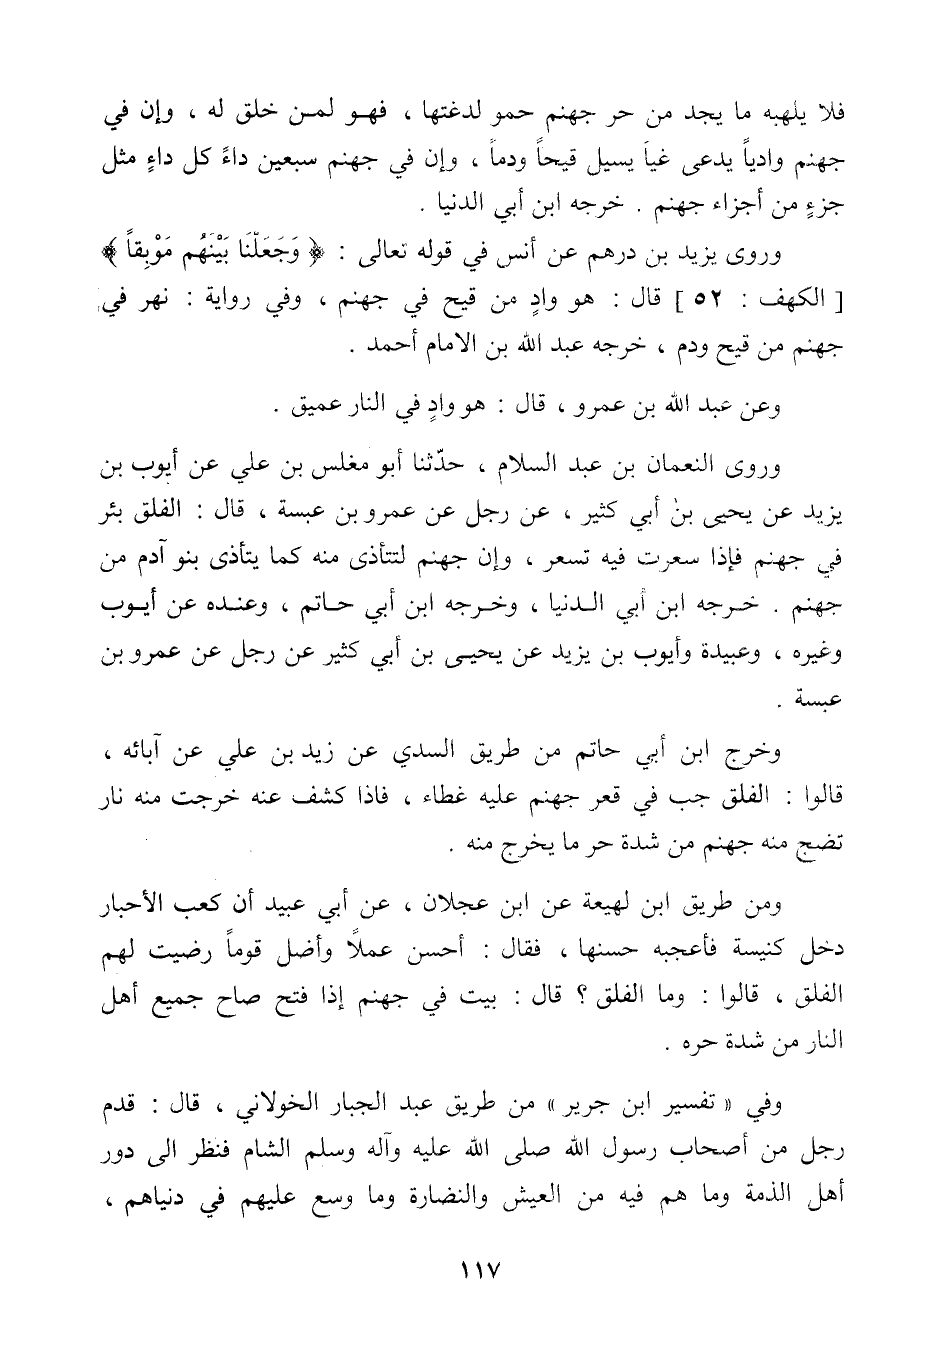 فلا يلهبه ما يجد من حر جهنم حمو لدغتها ، فهو لمن خلق له ، وإن في
جهنم وادياً يدعى غياً يسيل قيحاً ودماً ، وإن في جهنم سبعين داءً كل داءٍ مثل
جزءٍ من أجزاء جهنم . خرجه ابن أبي الدنيا .
وروى يزيد بن درهم عن أنس في قوله تعالى : ﴿ وَجَعَلْنَا بَيْنَهُم مَوْبِقاً ﴾
[ الكهف : ٥٢ ] قال : هو وادٍ من قيح في جهنم ، وفي رواية : نهر في
جهنم من قيح ودم ، خرجه عبد الله بن الامام أحمد .
وعن عبد الله بن عمرو ، قال : هو وادٍ في النار عميق .
وروى النعمان بن عبد السلام ، حدّثنا أبو مغلس بن علي عن أيوب بن
يزيد عن يحيى بن أبي كثير ، عن رجل عن عمرو بن عبسة ، قال : الفلق بئر
في جهنم فإذا سعرت فيه تسعر ، وإن جهنم لتتأذى منه كما يتأذى بنو آدم من
جهنم . خرجه ابن أبي الدنيا ، وخرجه ابن أبي حاتم ، وعنده عن أيوب
وغيره ، وعبيدة وأيوب بن يزيد عن يحيى بن أبي كثير عن رجل عن عمرو بن
عبسة .
وخرج ابن أبي حاتم من طريق السدي عن زيد بن علي عن آبائه ،
قالوا : الفلق جب في قعر جهنم عليه غطاء ، فاذا كشف عنه خرجت منه نار
تضج منه جهنم من شدة حر ما يخرج منه .
ومن طريق ابن لهيعة عن ابن عجلان ، عن أبي عبيد أن كعب الأحبار
دخل كنيسة فأعجبه حسنها ، فقال : أحسن عملاً وأضل قوماً رضيت لهم
الفلق ، قالوا : وما الفلق ؟ قال : بيت في جهنم إذا فتح صاح جميع أهل
النار من شدة حره .
وفي « تفسير ابن جرير » من طريق عبد الجبار الخولاني ، قال : قدم
رجل من أصحاب رسول الله صلى الله عليه وآله وسلم الشام فنظر الى دور
أهل الذمة وما هم فيه من العيش والنضارة وما وسع عليهم في دنياهم ،
١١٧